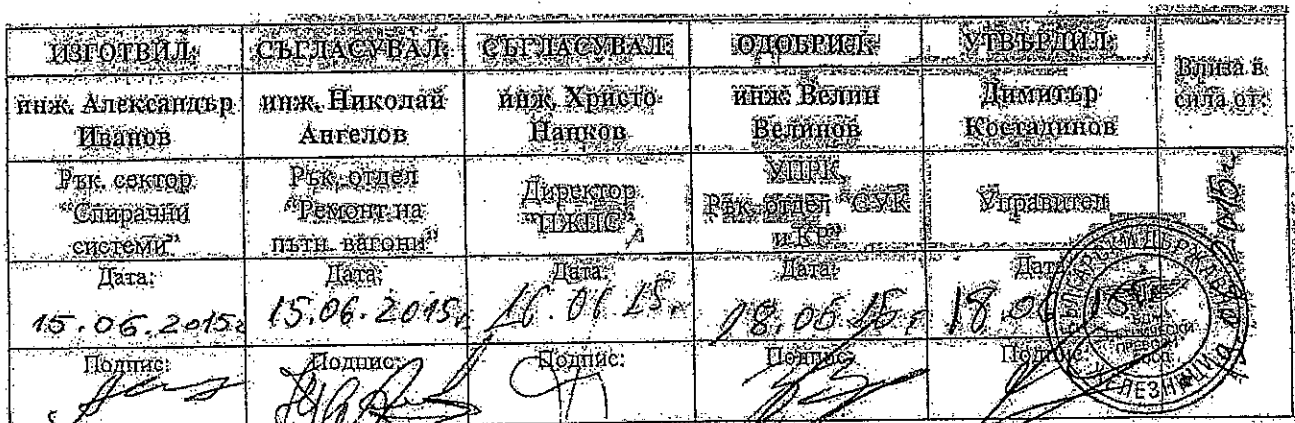 ИЗГОТВИЛ: СЪГЛАСУВАЛ: СЪГЛАСУВАЛ: ОДОБРИЛ: УТВЪРДИЛ: Влиза в сила от:
инж. Александър Иванов
инж. Николай Ангелов
инж. Христо Нанков
инж. Велин Велинов
Димитър Костадинов
Рък. сектор
"Спирачни
системи"
Рък. отдел
"Ремонт на
пътн. вагони"
Директор
"ПЖПС"
УПРК,
Рък. отдел "СУК
и КР"
Управител
Дата: Дата: Дата: Дата: Дата:
15.06.2015г. 15.06.2015г. 16.06.15г 18.06.15г 18.06
Подпис: Подпис: Подпис: Подпис: Подпис:
БЪЛГАРСКИ ДЪРЖАВНИ ЖЕЛЕЗНИЦИ
ПРЕВОЗИ
ЕООД